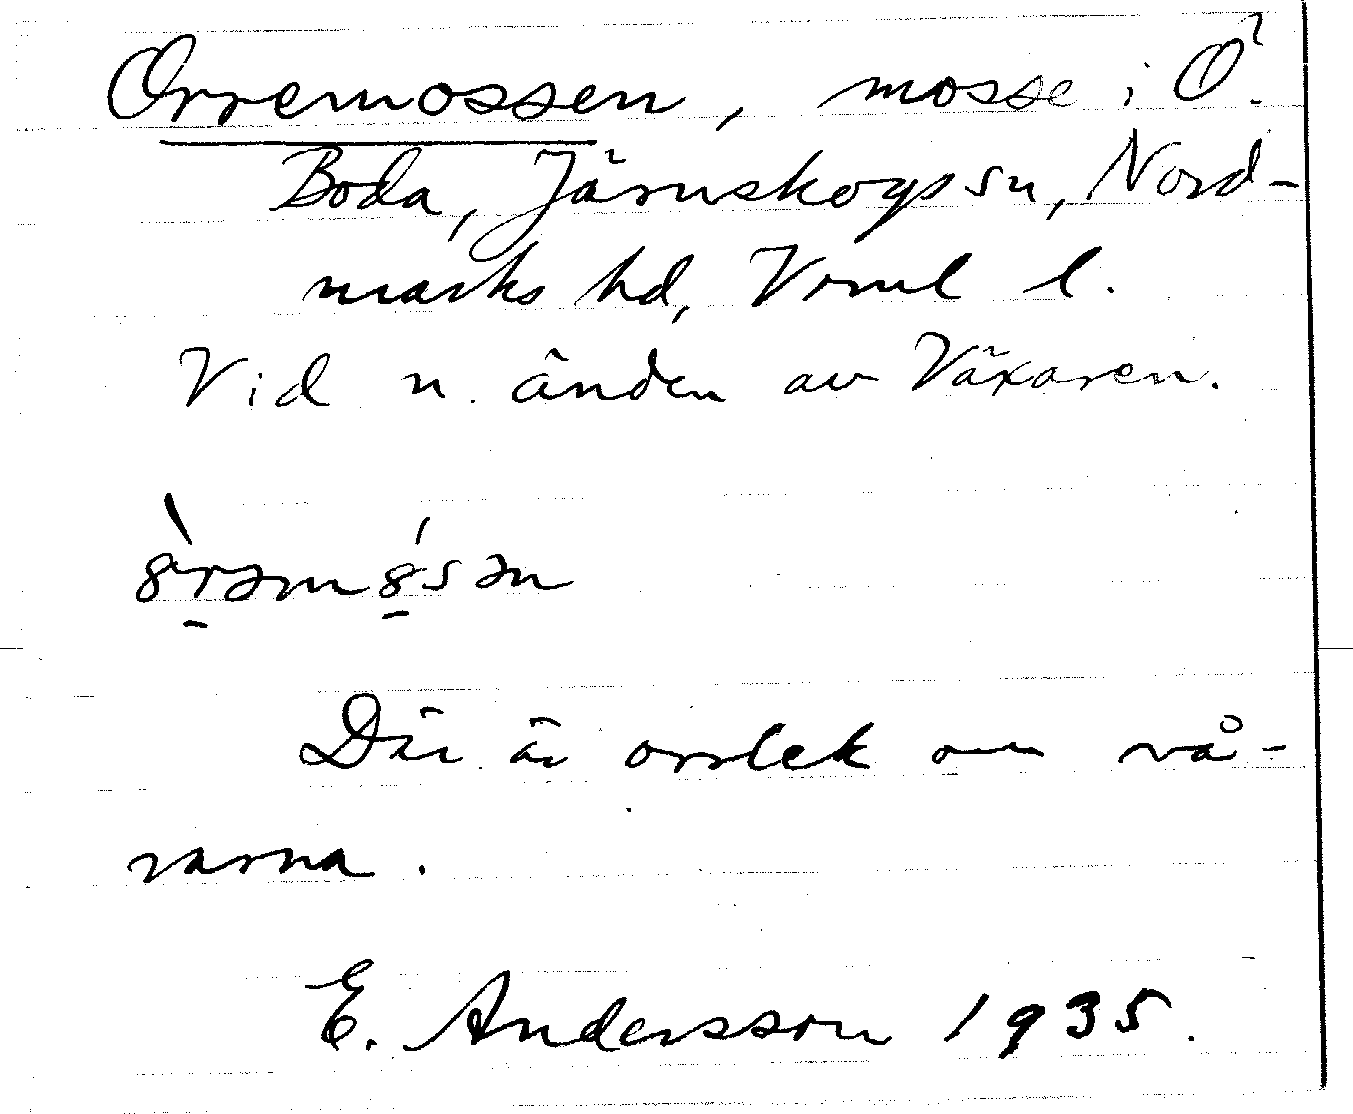 Orremossen, mosse i Ö.
Boda, Järnskogs sn, Nord-
marks hd, Vrml l.
Vid n. änden av Växaren.
Där är orrlek om vå-
rarna.
E. Andersson 1935.